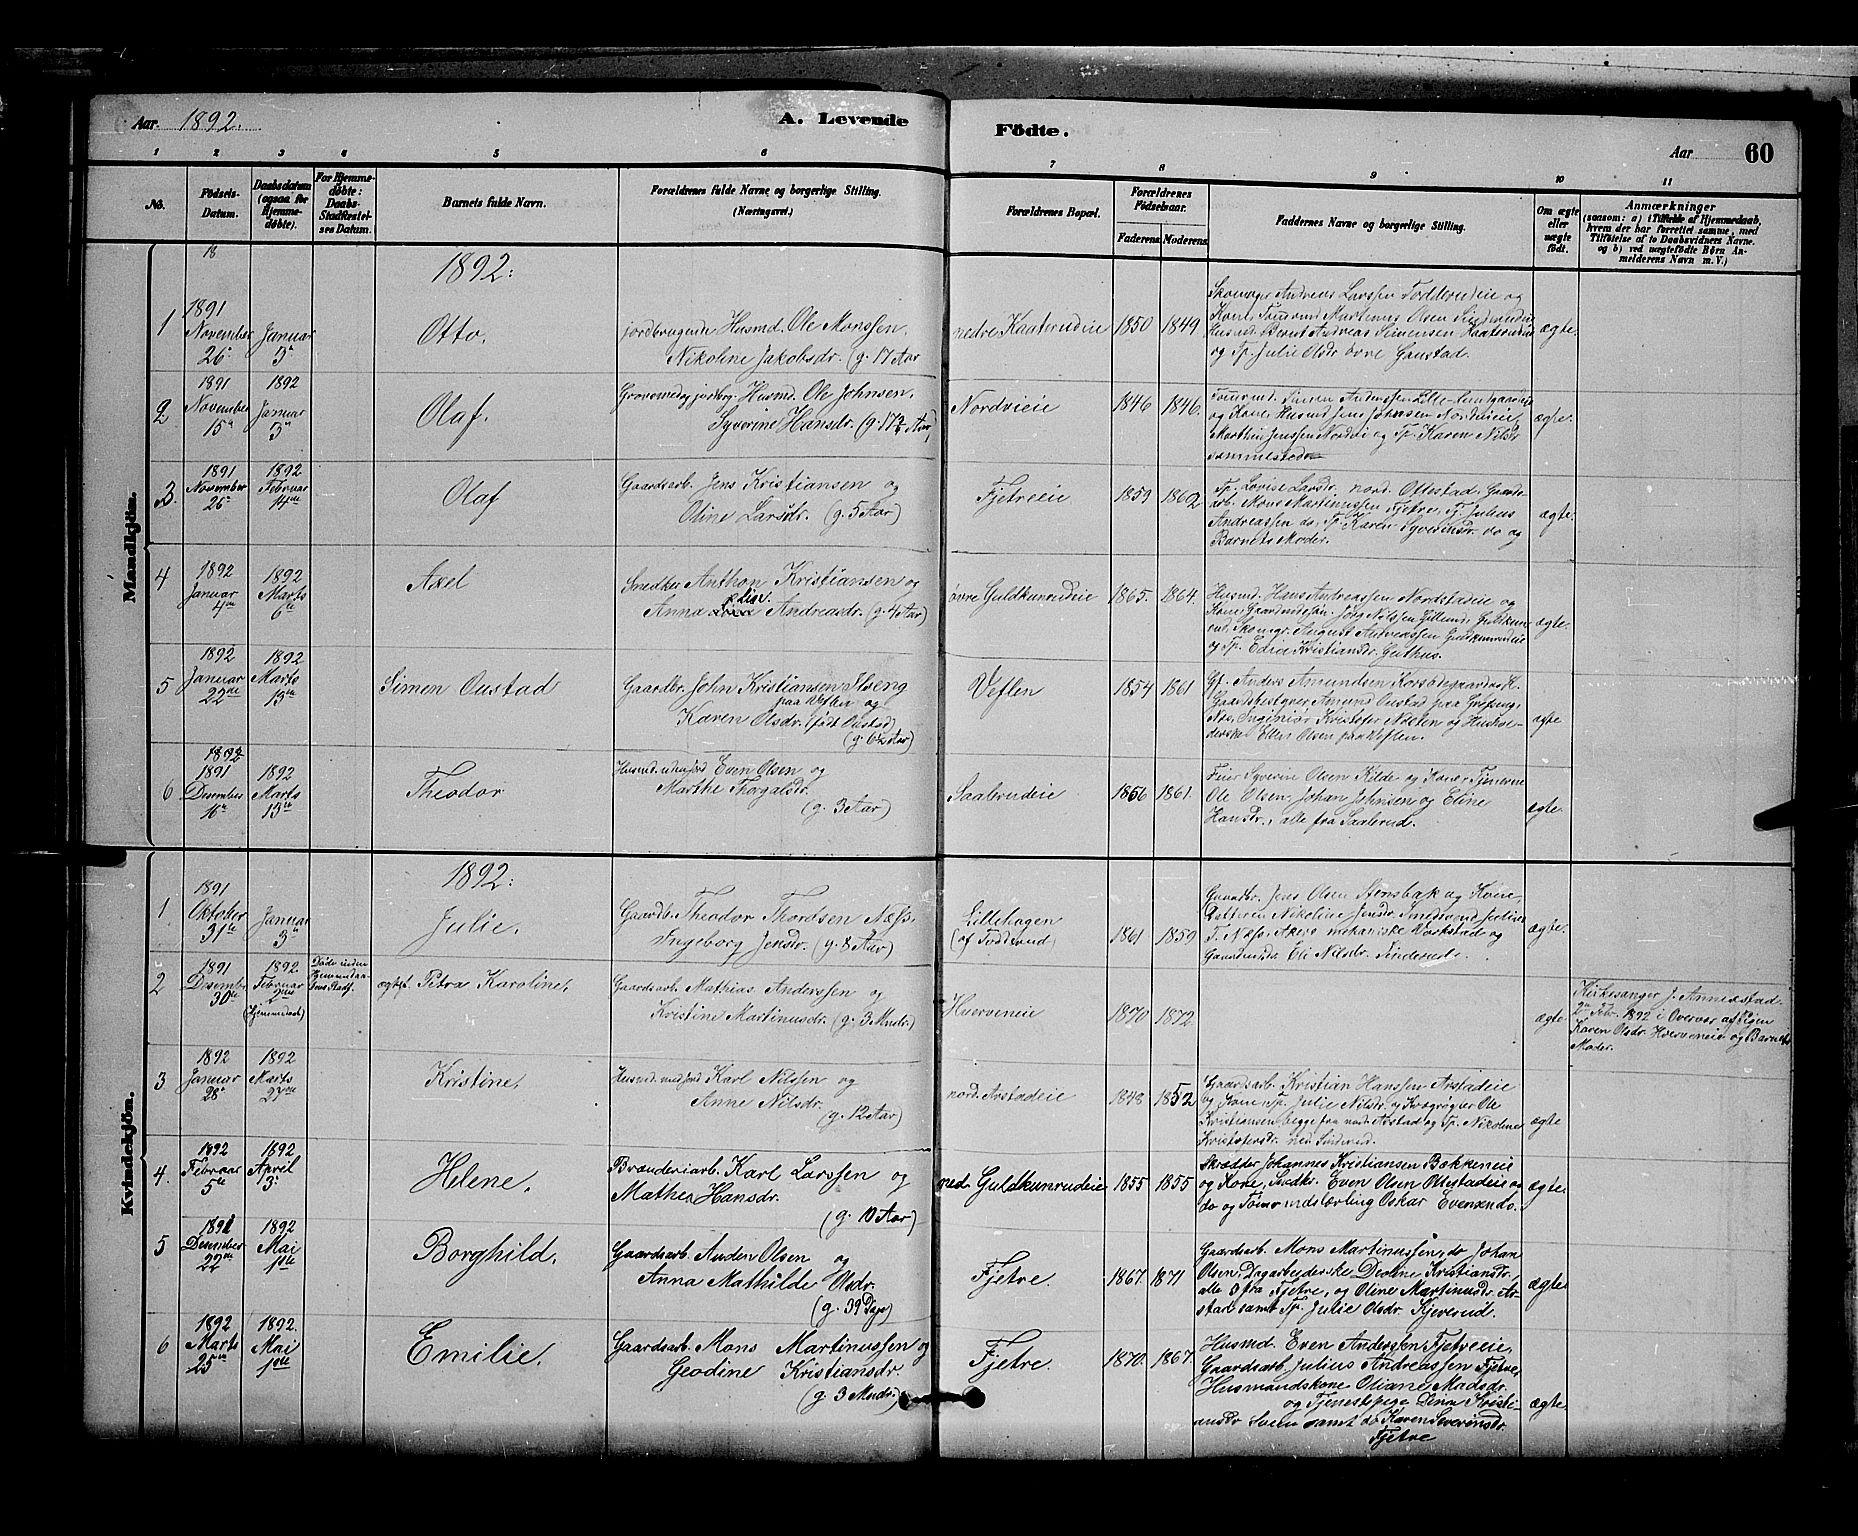 Aar. 1892.
A. Levende
Fødte.
Aar 60
1 2 3 4 5 6 7 8 9 10 11
No.
Fødsels-Datum.
Daabsdatum (ogsaa for Hjemmedøbte).
For Hjemmedøbte: Daabs-Stadfæstelses Datum.
Barnets fulde Navn.
Forældrenes fulde Navne og borgerlige Stilling.
(Næringsvei.)
Forældrenes Bopæl.
Forældrenes Fødselsaar.
Faderens. Moderens.
Faddernes Navne og borgerlige Stilling.
Om ægte eller uægte født.
Anmærkninger
(saasom: a) i Tilfælde af Hjemmedaab, hvem der har forrettet samme, med Tilføielse af to Daabsvidners Navne. og b) ved uægtefødte Børn Anmelderens Navn m. V.)
Mandkjøn.
18
1892:
1 1891 November 26. Januar 3. Otto. jordbrugende Husmd. Ole Monssen, Nikoline Jakobsdr. (g. 17 Aar) nedre Kaaterudeie 1850 1849
Skomager Andreas Larssen Fodderudeie og
Kone, Tømrmd. Martinus Olsen Sinderudeie
Husmd. Bernt Andreas Simensen Kaaterudeie
og Pp. Julie Olsdr. øvre Gaustad.
ægte.
2. 1891 November 15 1892 Januar 3 Olaf. jordbrg. Husmd. Ole Johnsen, Syverine Hansdr. (g. 17½ Aar) Nordvieie 1846 1846.
og Kone, Husmd. Jens Johnsen Nordvieie,
Marthin Jenssen Nordvi og Pp. Karen Nilsdr.
sammesteds
ægte.
3. 1891 November 26 1892 Februar 14de Olaf Gaardsarb. Jens Kristiansen og Oline Larsdr. (g. 5 Aar) Fjetreeie 1859 1862
Pp. Lovise Larsdr. nord. Ottestad, Gaards-
arb. Mons Martinussen Fjetre, T. Julius
Andreassen do, Pp. Karen Syverinsdr. do og
Barnets Moder.
ægte.
4 1892 Januar 4de 1892 Marts 6te Axel Snedker Anthon Kristiansen og Anna Andreasdr. (g. 4 Aar) øvre Guldkunrudeie 1865. 1864.
Husmd. Hans Andreassen Nordstadeie og
Kone, Gaardmdssøn Jørg Nilssen Lillemo Guldkun-
rud, Skomgr. August Andreassen Guldkunrudeie
og Pp. Edva Kristiansdr. Guthus.
ægte.
5 1892 Januar 22de 1892 Marts 13de Simen Oustad Gaardbr. John Kristiansen Høeng paa Veflen og Karen Olsdr. (født Oustad) (g. 6½ Aar) Veflen 1854 1861
Gf. Anders Amundsen Korsødegaarden
Gaardsbestyrer Amund Oustad paa
Nes, Ingeniør Kristofer Nilsen og Hushol-
derske Ellen Olsen paa Veflen.
ægte
6 1892 1891 Desember 16 1892 Marts 13de Theodor Husmd. uden jord Even Olsen og Marthe Thorgalsdr. (g. 3 Aar) Saalerudeie 1856 1861.
Feier Syverin Olsen Kilde og Kone, Tjenerne
Ole Olsen, Johan Johnsen og Eline
Hansdr., alle fra Saalerud.
ægte.
Kvindekjøn.
1892:
1. 1891 Oktober 31te Januar 3. Julie. Gaardb. Theodor Thordsen Næss, Ingeborg Jensdr. (g. 8 Aar) Lillehagen (af Fodderud) 1861 1859
Gaardbr. Jens Olsen Stensbak og Kone,
Datteren Nikoline Jensdr.
T. Næss Akers mekaniske Værksted og
Eli Nilsdr. Sinderud.
ægte.
2 1891 Desember 30te 1892. Februar 2den (hjemmedøbt) Døde inden Hjemmedaabens Stadf. Petra Karoline. Gaardsarb. Mathias Anderssen og Kristine Martinusdr. (g. 3 Mndr.) Hverveneie 1870 1872. ægte
Kirkesanger J. Annæstad
2den Febr. 1892 i Overvær af Pigen
Karen Olsdr. Hverveneie og Barnets
Moder.
3 1892 Januar 28 1892 Marts 27de Kristine. Husmd. med jord Karl Nilssen og Anne Nilsdr. (g. 12 Aar) nord. Arstadeie 1848 1852
Gaardsarb. Kristian Hanssen Arstadeie
og Kone, Pp. Julie Nilsdr. og Kvægrøgter Ole
Kristiansen begge fra nord. Arstad og Pp. Nikoline
Kristofersdr. ned. Sinderud.
ægte
4. 1892 Februar 5te 1892 April 3. Helene. Brænderiarb. Karl Larssen og Mathea Hansdr. (g. 10 Aar) ned. Guldkunrudeie 1855 1855
Skrædder Johannes Kristiansen Bækkeneie
og Kone, Snedkr. Even Olsen Ottestadeie og
do og Tømrmdslærling Oskar Evensen do.
ægte.
5 1891 Desember 22de 1892 Mai 1ste Borghild. Gaardsarb. Anden Olsen og Anna Mathilde Olsdr. (g. 39 Dage) Fjetre. 1867. 1871
Gaardsarb. Mons Martinussen, do Johan
Olsen, Dagarbeiderske Deoline Kristiansdr,
alle 3 fra Fjetre, og Oline Martinusdr. Ar-
stad samt Pp. Julie Olsdr. Kjeverud.
ægte
6 1892 Marts 25de 1892. Mai 1ste Emilie. Gaardsarb. Mons Martinussen og Geodine Kristiansdr. (g. 3 Mndr.) Fjetre. 1870. 1867.
Husmd. Even Anderssen Fjetreeie,
Gaardsarb. Julius Andreassen Fjetre,
Husmandskone Oliane Madsdr.
og Tjenestepige Dina Kristi-
ansdr samt do Karen Severinsdr.
Fjetre
ægte.